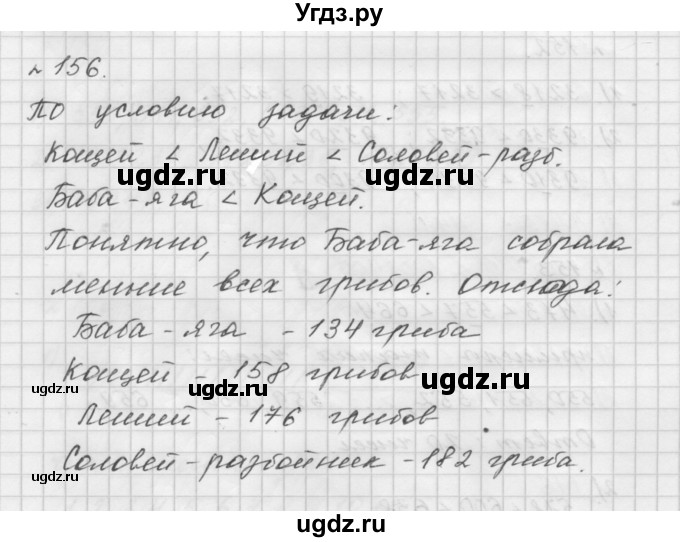 Угдз.ру
№ 156.
По условию задачи:
Кощей < Леший < Соловей-разб.
ugdz.ru ugdz.ru
Баба-яга < Кощей.
Понятно, что Баба-яга собрала
меньше всех грибов. Отсюда:
Баба-яга - 134 гриба
Кощей - 158 грибов
ugdz.ru ugdz.ru ugdz.ru
Леший - 176 грибов
Соловей-разбойник - 182 гриба.
ugdz.ru ugdz.ru
ugdz.ru